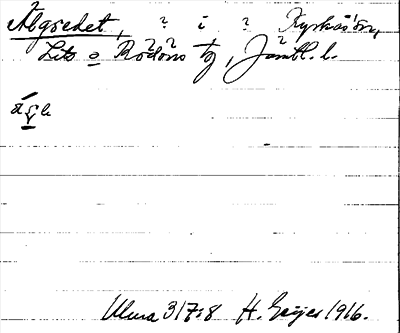 Älgsedet, ? i ? Kyrkåsörn,
Lits o Rödöns tg, Jämtl. l.
Ulma 317:8 H. Geijer 1916.